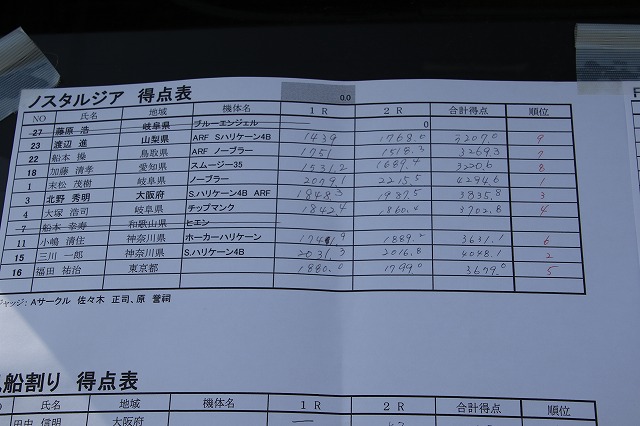 ノスタルジア 得点表
0.0
NO 氏名 地域 機体名 1 R 2 R 合計得点 順位
27 藤原 浩 岐阜県 ブルーエンジェル 0
23 渡辺 進 山梨県 ARF Sハリケーン4B 1439 1768.0 3207.0 9
22 船本 操 鳥取県 ARF ノーブラー 1751 1518.3 3269.3 7
18 加藤 清孝 愛知県 スムージー35 1531.2 1689.4 3220.6 8
1 末松 茂樹 岐阜県 ノーブラー 2079.1 2215.5 4294.6 1
3 北野 秀明 大阪府 S.ハリケーン4B ARF 1848.3 1987.5 3835.8 3
4 大塚 浩司 岐阜県 チップマンク 1842.4 1860.4 3702.8 4
7 船本 幸寿 和歌山県 ヒエン
11 小嶋 清佳 神奈川県 ホーカーハリケーン 1741.9 1889.2 3631.1 6
15 三川 一郎 神奈川県 S.ハリケーン4B 2031.3 2016.8 4048.1 2
16 福田 祐治 東京都 1880.0 1799.0 3679.0 5
ジャッジ: Aサークル 佐々木 正司、原 誉祠
船割り 得点表
氏名 地域 機体名 1 R 2 R 合計得点 順位
田中 信明 大阪府